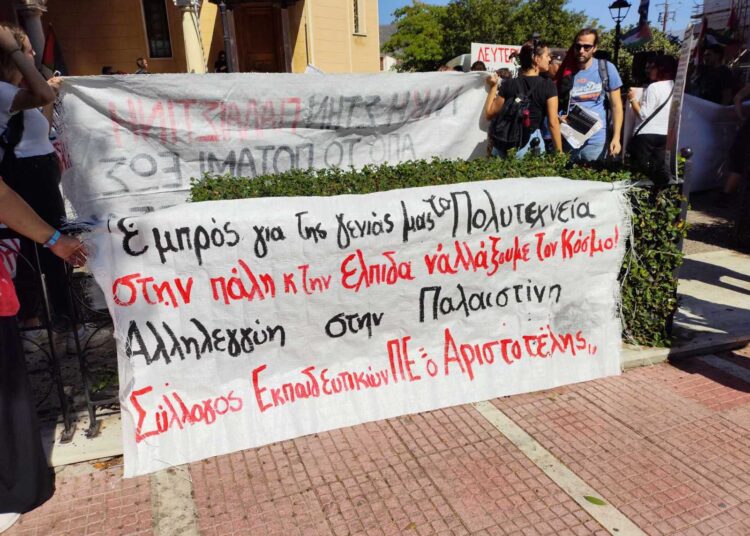 ΛΕΥΤΕΡ
ΝΙΚΗ ΣΤΗΝ ΠΑΛΑΙΣΤΙΝΗ
ΑΠΟ ΤΟ ΠΟΤΑΜΙ ΕΩΣ
Εμπρός για της γενιάς μας τα Πολυτεχνεία
στην πάλη κ την Ελπίδα ν' αλλάξουμε τον Κόσμο!
Αλληλεγγύη στην Παλαιστίνη
Σύλλογος Εκπαιδευτικών ΠΕ "ο Αριστοτέλης"